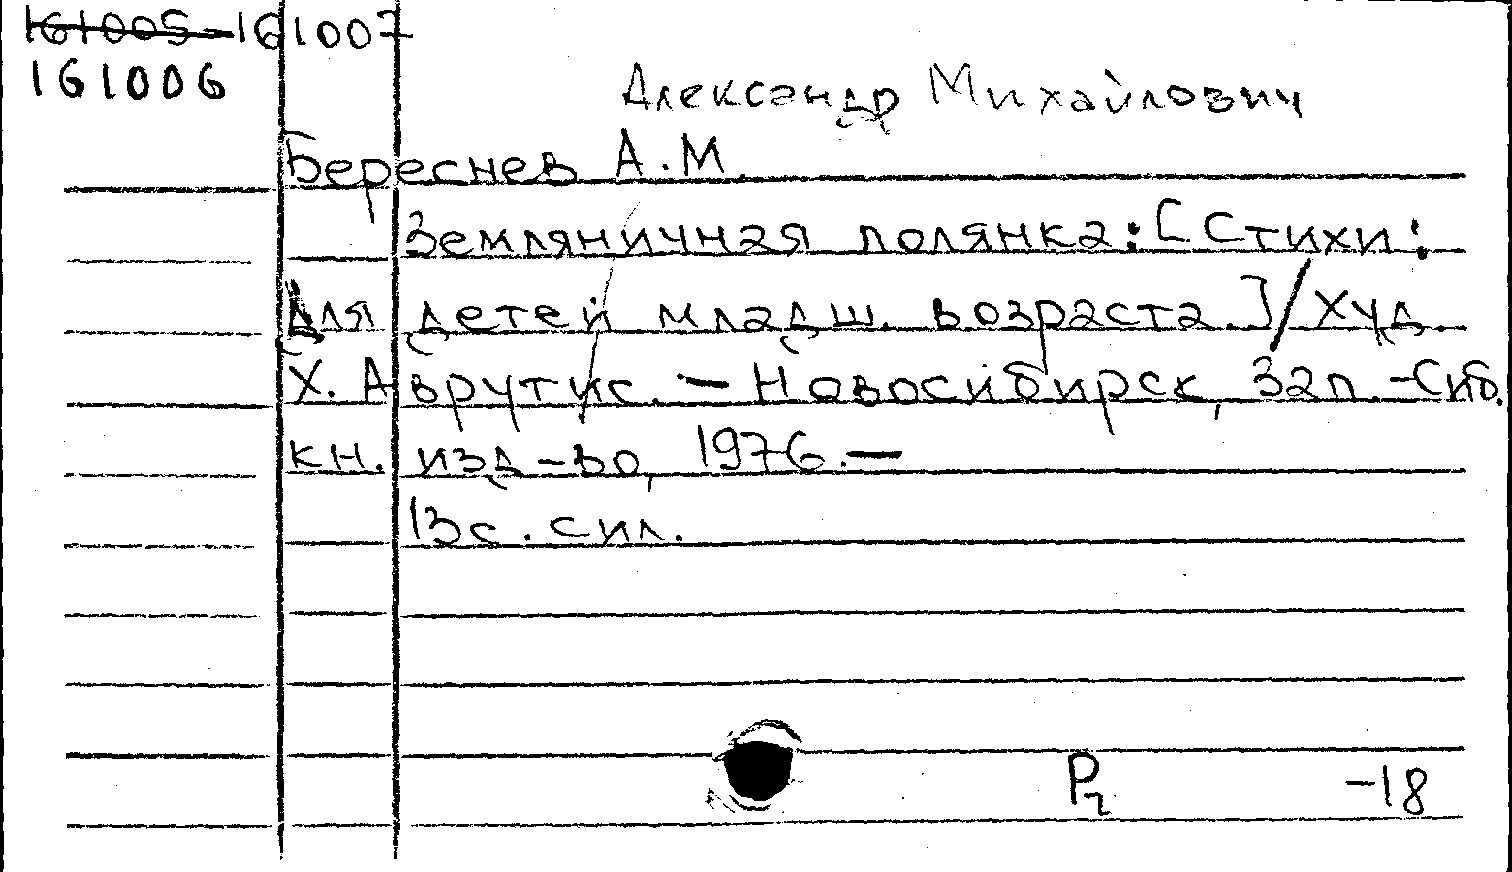 161005-161007
161006
Александр Михайлович
Береснев А.М.
Земляничная полянка: [Стихи:
Для детей младш. возраста.]/Худ.
Х. Аврутис. — Новосибирск, Зап.-Сиб.
кн. изд-во, 1976. —
13с. с ил.
Р2 -18